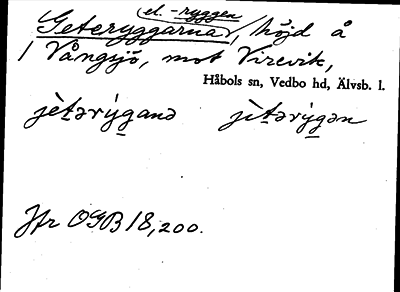 el. -ryggen
Geteryggarna, höjd å
/ Vångsjö, mot Virevik,
Håbols sn, Vedbo hd, Älvsb. l.
jètərýganə jìtərýgən
Jfr OGB 18, 200.